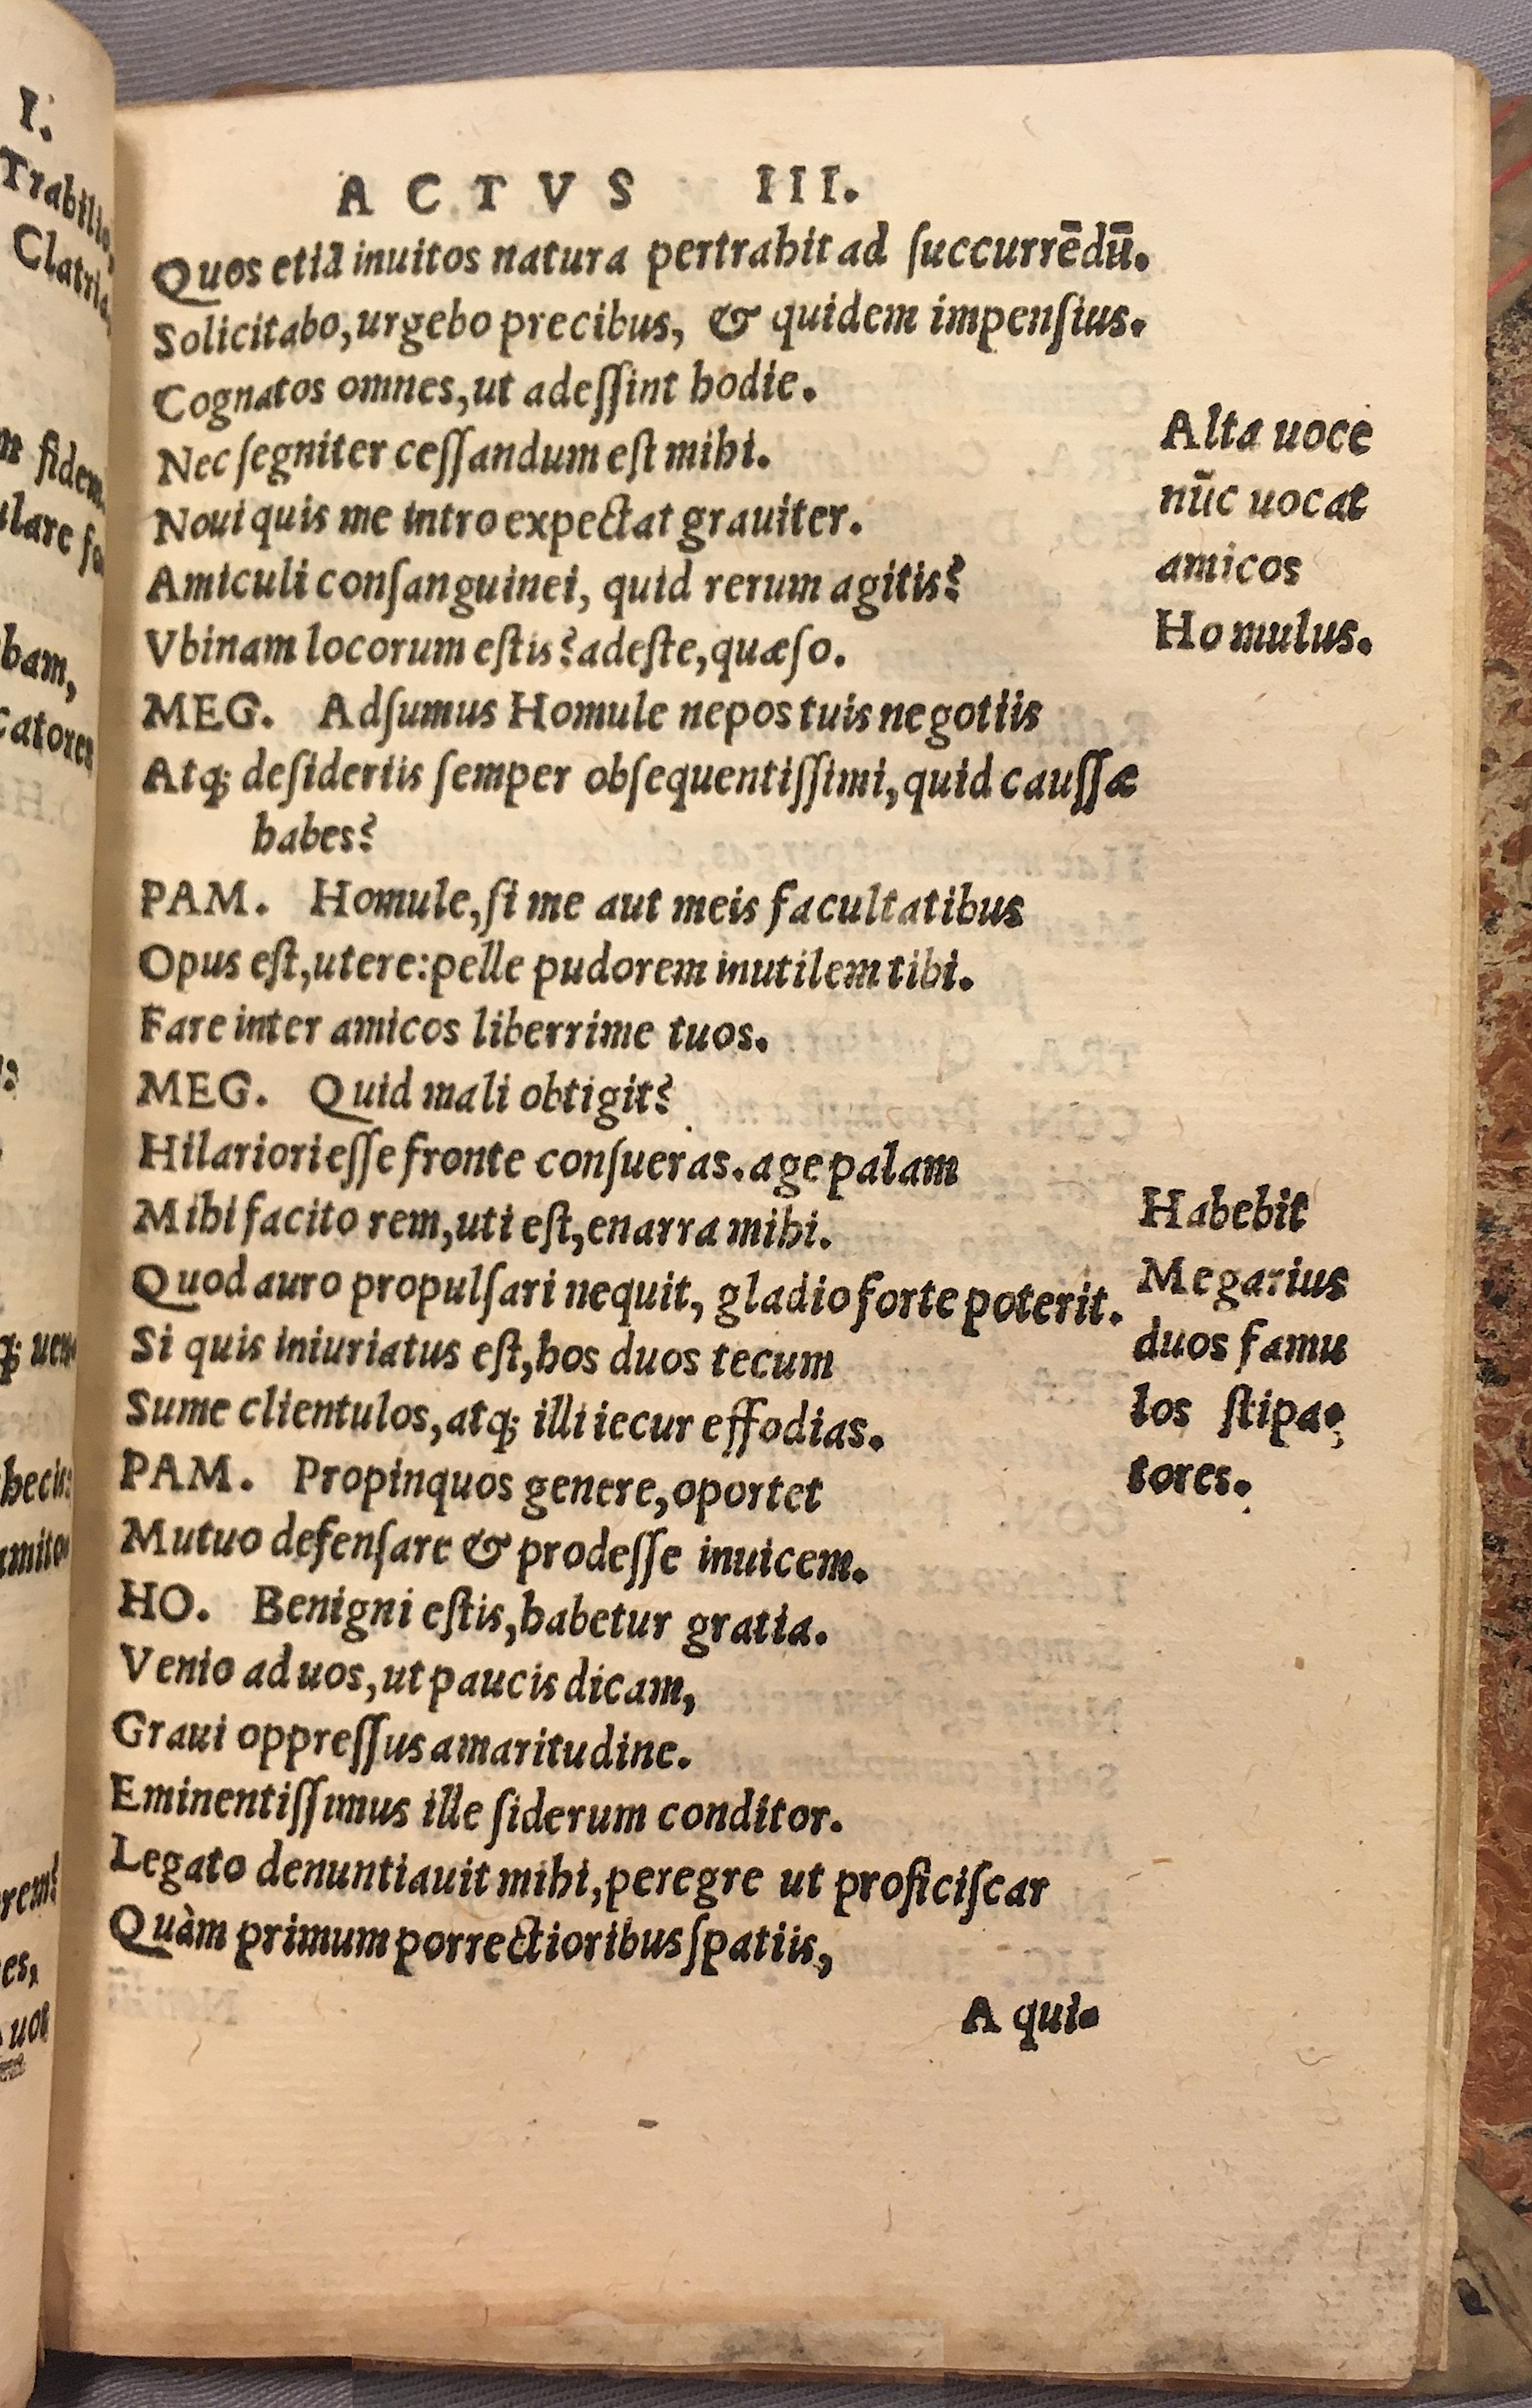 ACTVS III.
Quos etiã inuitos natura pertrahit ad ſuccurrẽdũ.
Solicitabo, urgebo precibus, & quidem impenſius.
Cognatos omnes, ut adeſſint hodie.
Nec ſegniter ceſſandum eſt mihi.
Noui quis me intro expectat grauiter.
Amiculi conſanguinei, quid rerum agitis?
Vbinam locorum eſtis? adeſte, quæſo.
Alta uoce
nũc uocat
amicos
Homulus.
MEG. Adſumus Homule nepos tuis negotiis
Atq; deſideriis ſemper obſequentiſſimi, quid cauſſæ
habes?
PAM. Homule, ſi me aut meis facultatibus
Opus eſt, utere: pelle pudorem inutilem tibi.
Fare inter amicos liberrime tuos.
MEG. Quid mali obtigit?
Hilariori eſſe fronte conſueras. age palam
Mihi facito rem, uti eſt, enarra mihi.
Quod auro propulſari nequit, gladio forte poterit.
Si quis iniuriatus eſt, hos duos tecum
Sume clientulos, atq; illi iecur effodias.
Habebit
Megarius
duos famu
los ſtipa-
tores.
PAM. Propinquos genere, oportet
Mutuo defenſare & prodeſſe inuicem.
HO. Benigni eſtis, habetur gratia.
Venio ad uos, ut paucis dicam,
Graui oppreſſus amaritudine.
Eminentiſſimus ille ſiderum conditor.
Legato denuntiauit mihi, peregre ut proficiſcar
Quàm primum porrectioribus ſpatiis,
A qui-